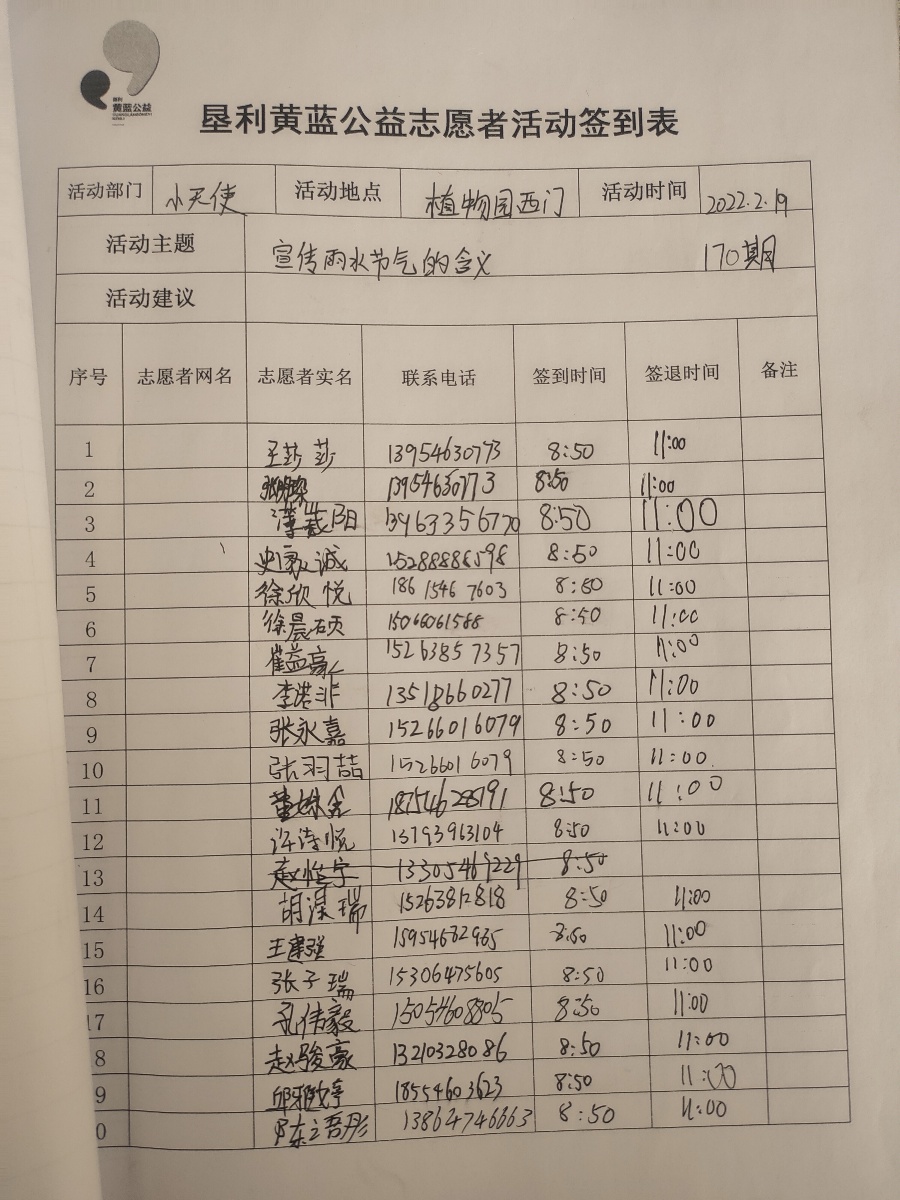 垦利
黄蓝公益
垦利黄蓝公益志愿者活动签到表
活动部门 小天使 活动地点 植物园西门 活动时间 2022.2.19
活动主题 宣传雨水节气的含义 170期
活动建议
序号 志愿者网名 志愿者实名 联系电话 签到时间 签退时间 备注
1 王莎莎 13954630773 8:50 11:00
2 13954630773 8:50 11:00
3 13963356770 8:50 11:00
4 史家诚 15288886598 8:50 11:00
5 徐欣悦 186 1546 7603 8:50 11:00
6 徐晨硕 15066061588 8:50 11:00
7 崔益豪 152 6385 7357 8:50 11:00
8 李浩非 13518660277 8:50 11:00
9 张永嘉 15266016079 8:50 11:00
10 张羽喆 15266016079 8:50 11:00
11 董姝含 18754628791 8:50 11:00
12 许诗悦 13793963104 8:50 11:00
13 赵恺宇 13305469229 8:50
14 胡淏瑞 15263812818 8:50 11:00
15 王建强 15954682935 8:50 11:00
16 张子瑞 15306475605 8:50 11:00
17 孔伟毅 15054608805 8:50 11:00
8 赵骏豪 13210328086 8:50 11:00
9 邱雅婷 18554603623 8:50 11:00
0 13864746663 8:50 11:00